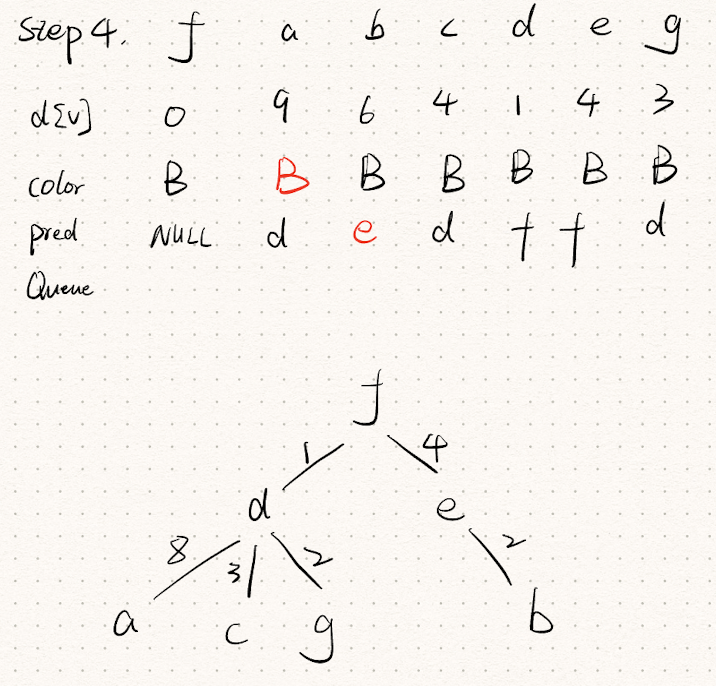 Step 4. f a b c d e g
d[v] 0 9 6 4 1 4 3
color B B B B B B B
pred NULL d e d f f d
Queue
f
1 4
d e
8 3 2 2
a c g b